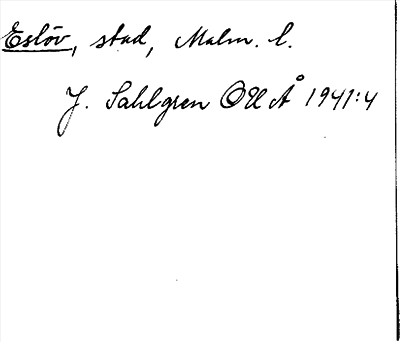 Eslöv, stad, Malm. l.
J. Sahlgren OUÅ 1941:4